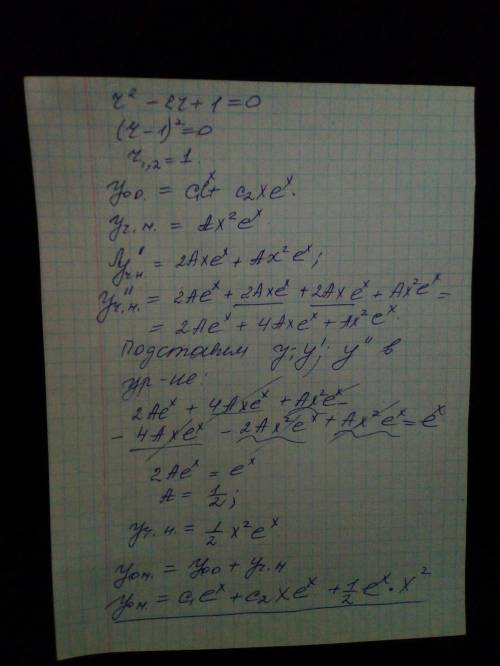 r² - 2r + 1 = 0
(r - 1)² = 0
r₁,₂ = 1.
yо.о. = c₁eˣ + c₂xeˣ.
yч.н. = Ax²eˣ
y'ч.н. = 2Axeˣ + Ax²eˣ;
y''ч.н. = 2Aeˣ + 2Axeˣ + 2Axeˣ + Ax²eˣ =
= 2Aeˣ + 4Axeˣ + Ax²eˣ.
Подставим y; y'; y'' в
ур-ие:
2Aeˣ + 4Axeˣ + Ax²eˣ -
- 4Axeˣ - 2Ax²eˣ + Ax²eˣ = eˣ
2Aeˣ = eˣ
A = 1/2;
yч.н. = 1/2 x²eˣ
yон. = yоо + yч.н
yон. = c₁eˣ + c₂xeˣ + 1/2 eˣ · x²